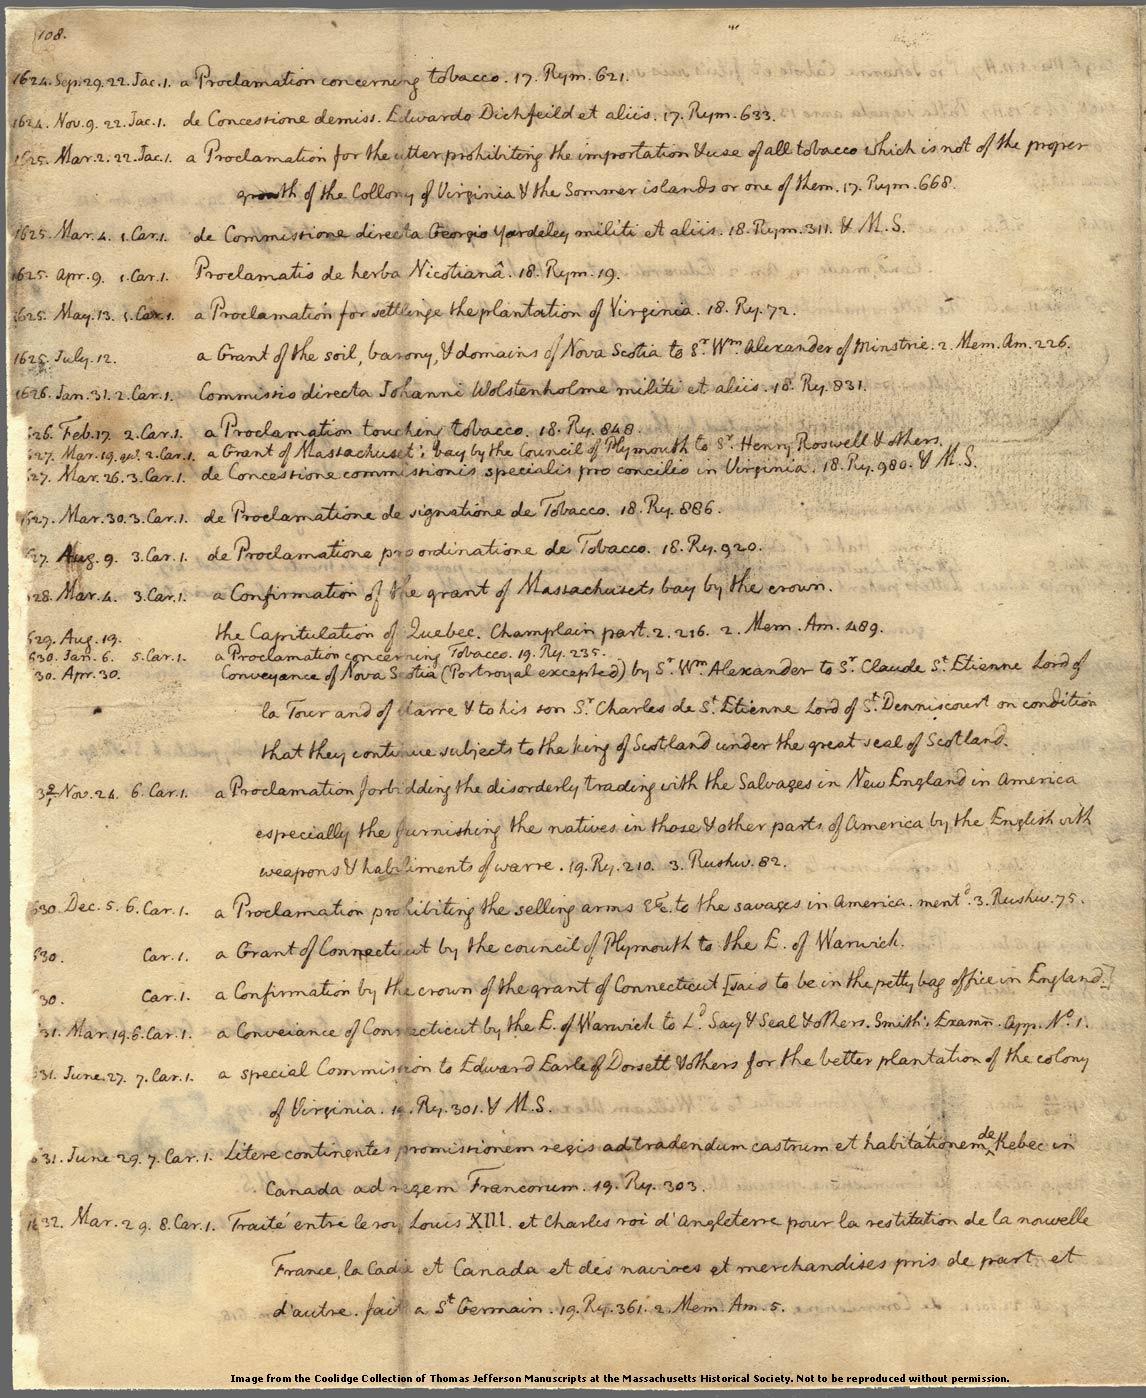 108.
1624. Sep. 29. 22. Jac. 1. a Proclamation concerning tobacco. 17. Rym. 621.
1624. Nov. 9. 22. Jac. 1. de Concessione demiss. Edwardo Dichfeild et aliis. 17. Rym. 633.
1625. Mar. 2. 22. Jac. 1. a Proclamation for the utter prohibiting the importation & use of all tobacco which is not of the proper
growth of the Collony of Virginia & the Sommer islands or one of them. 17. Rym. 668.
1625. Mar. 4. 1. Car. 1. de Commissione directa Georgio Yardeley militi et aliis. 18. Rym. 311. & M.S.
1625. Apr. 9. 1. Car. 1. Proclamatio de herba Nicotianâ. 18. Rym. 19.
1625. May. 13. 1. Car. 1. a Proclamation for settlinge the plantation of Virginia. 18. Ry. 72.
1625. July. 12. a Grant of the soil, barony, & domains of Nova Scotia to Sr. Wm. Alexander of Minstrie. 2. Mem. Am. 226.
1626. Jan. 31. 2. Car. 1. Commissio directa Johanni Wolstenholme militi et aliis. 18. Ry. 831.
626. Feb. 17. 2. Car. 1. a Proclamation touching tobacco. 18. Ry. 848.
627. Mar. 19. qu. 2. Car. 1. a Grant of Massachuset's bay by the Council of Plymouth to Sr. Henry Roswell & others.
627. Mar. 26. 3. Car. 1. de Concessione commissionis specialis pro concilio in Virginia. 18. Ry. 980. & M.S.
627. Mar. 30. 3. Car. 1. de Proclamatione de signatione de Tobacco. 18. Ry. 886.
27. Aug. 9. 3. Car. 1. de Proclamatione pro ordinatione de Tobacco. 18. Ry. 920.
28. Mar. 4. 3. Car. 1. a Confirmation of the grant of Massachusets bay by the crown.
629. Aug. 19. the Capitulation of Quebec. Champlain part. 2. 216. 2. Mem. Am. 489.
630. Jan. 6. 5. Car. 1. a Proclamation concerning Tobacco. 19. Ry. 235.
30. Apr. 30. Conveyance of Nova Scotia (Portroyal excepted) by Sr. Wm. Alexander to Sr. Claude St. Etienne Lord of
la Tour and of Uarre & to his son Sr. Charles de St. Etienne Lord of St. Denniscourt on condition
that they continue subjects to the king of Scotland under the great seal of Scotland.
30/1 Nov. 24. 6. Car. 1. a Proclamation forbidding the disorderly trading with the Salvages in New England in America
especially the furnishing the natives in those & other parts of America by the English with
weapons & habiliments of warre. 19. Ry. 210. 3. Rushw. 82.
630. Dec. 5. 6. Car. 1. a Proclamation prohibiting the selling arms &c. to the savages in America. mentd. 3. Rushw. 75.
630. Car. 1. a Grant of Connecticut by the council of Plymouth to the E. of Warwick.
30. Car. 1. a Confirmation by the crown of the grant of Connecticut [said to be in the petty bag office in England.]
31. Mar. 19. 6. Car. 1. a Conveiance of Connecticut by the E. of Warwick to Ld. Say & Seal & others. Smith's Examn. App. No. 1.
631. June. 27. 7. Car. 1. a special Commission to Edward Earle of Dorsett & others for the better plantation of the colony
of Virginia. 19. Ry. 301. & M.S.
631. June 29. 7. Car. 1. Litere continentes promissionem regis ad tradendum castrum et habitationem de Kebec in
Canada ad regem Francorum. 19. Ry. 303.
1632. Mar. 29. 8. Car. 1. Traité entre le roy Louis XIII. et Charles roi d'Angleterre pour la restitution de la nouvelle
France, la Cadie et Canada et des navires et merchandises pris de part et
d'autre. fait a St. Germain. 19. Ry. 361. 2. Mem. Am. 5.
Image from the Coolidge Collection of Thomas Jefferson Manuscripts at the Massachusetts Historical Society. Not to be reproduced without permission.